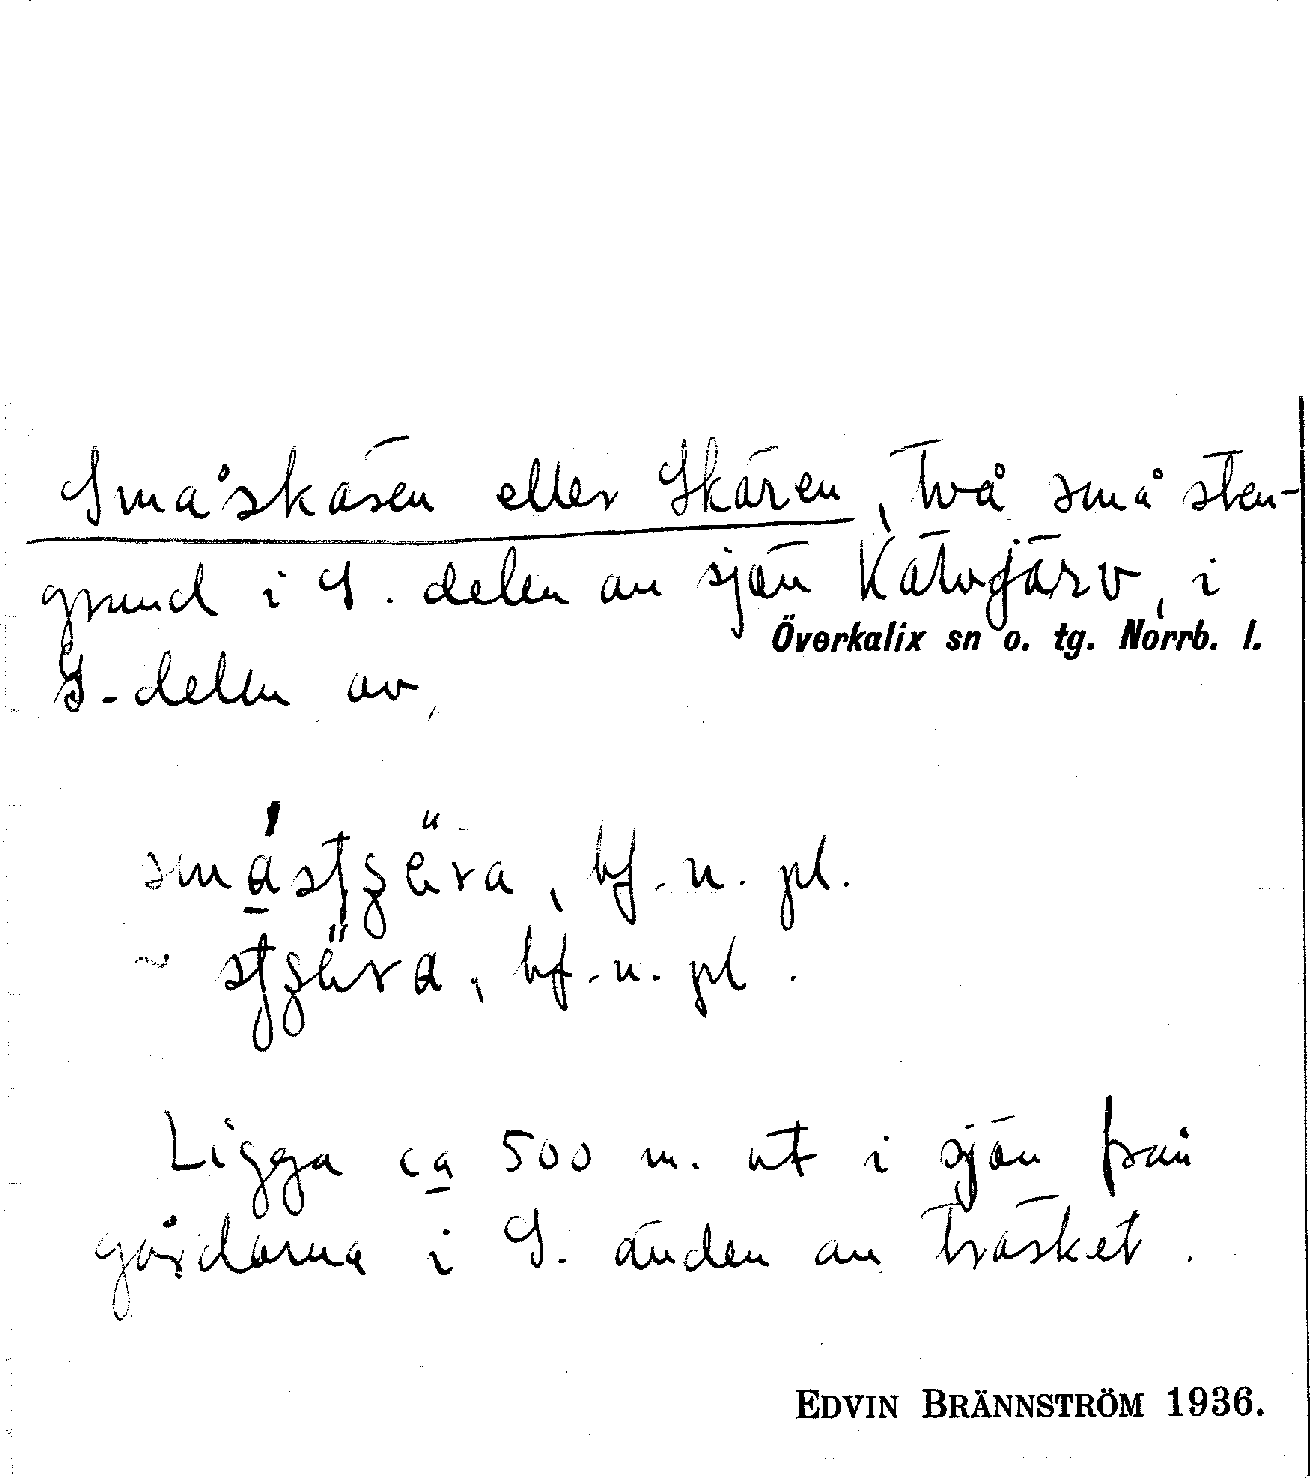 Småskären eller Skären, två små sten-
grund i S. delen av sjön Kätvojärv, i
S-delen av, Överkalix sn o. tg. Norrb. l.
bf. n. pl.
~ bf. n. pl.
Ligga ca 500 m. ut i sjön från
gårdarna i S. änden av träsket.
EDVIN BRÄNNSTRÖM 1936.